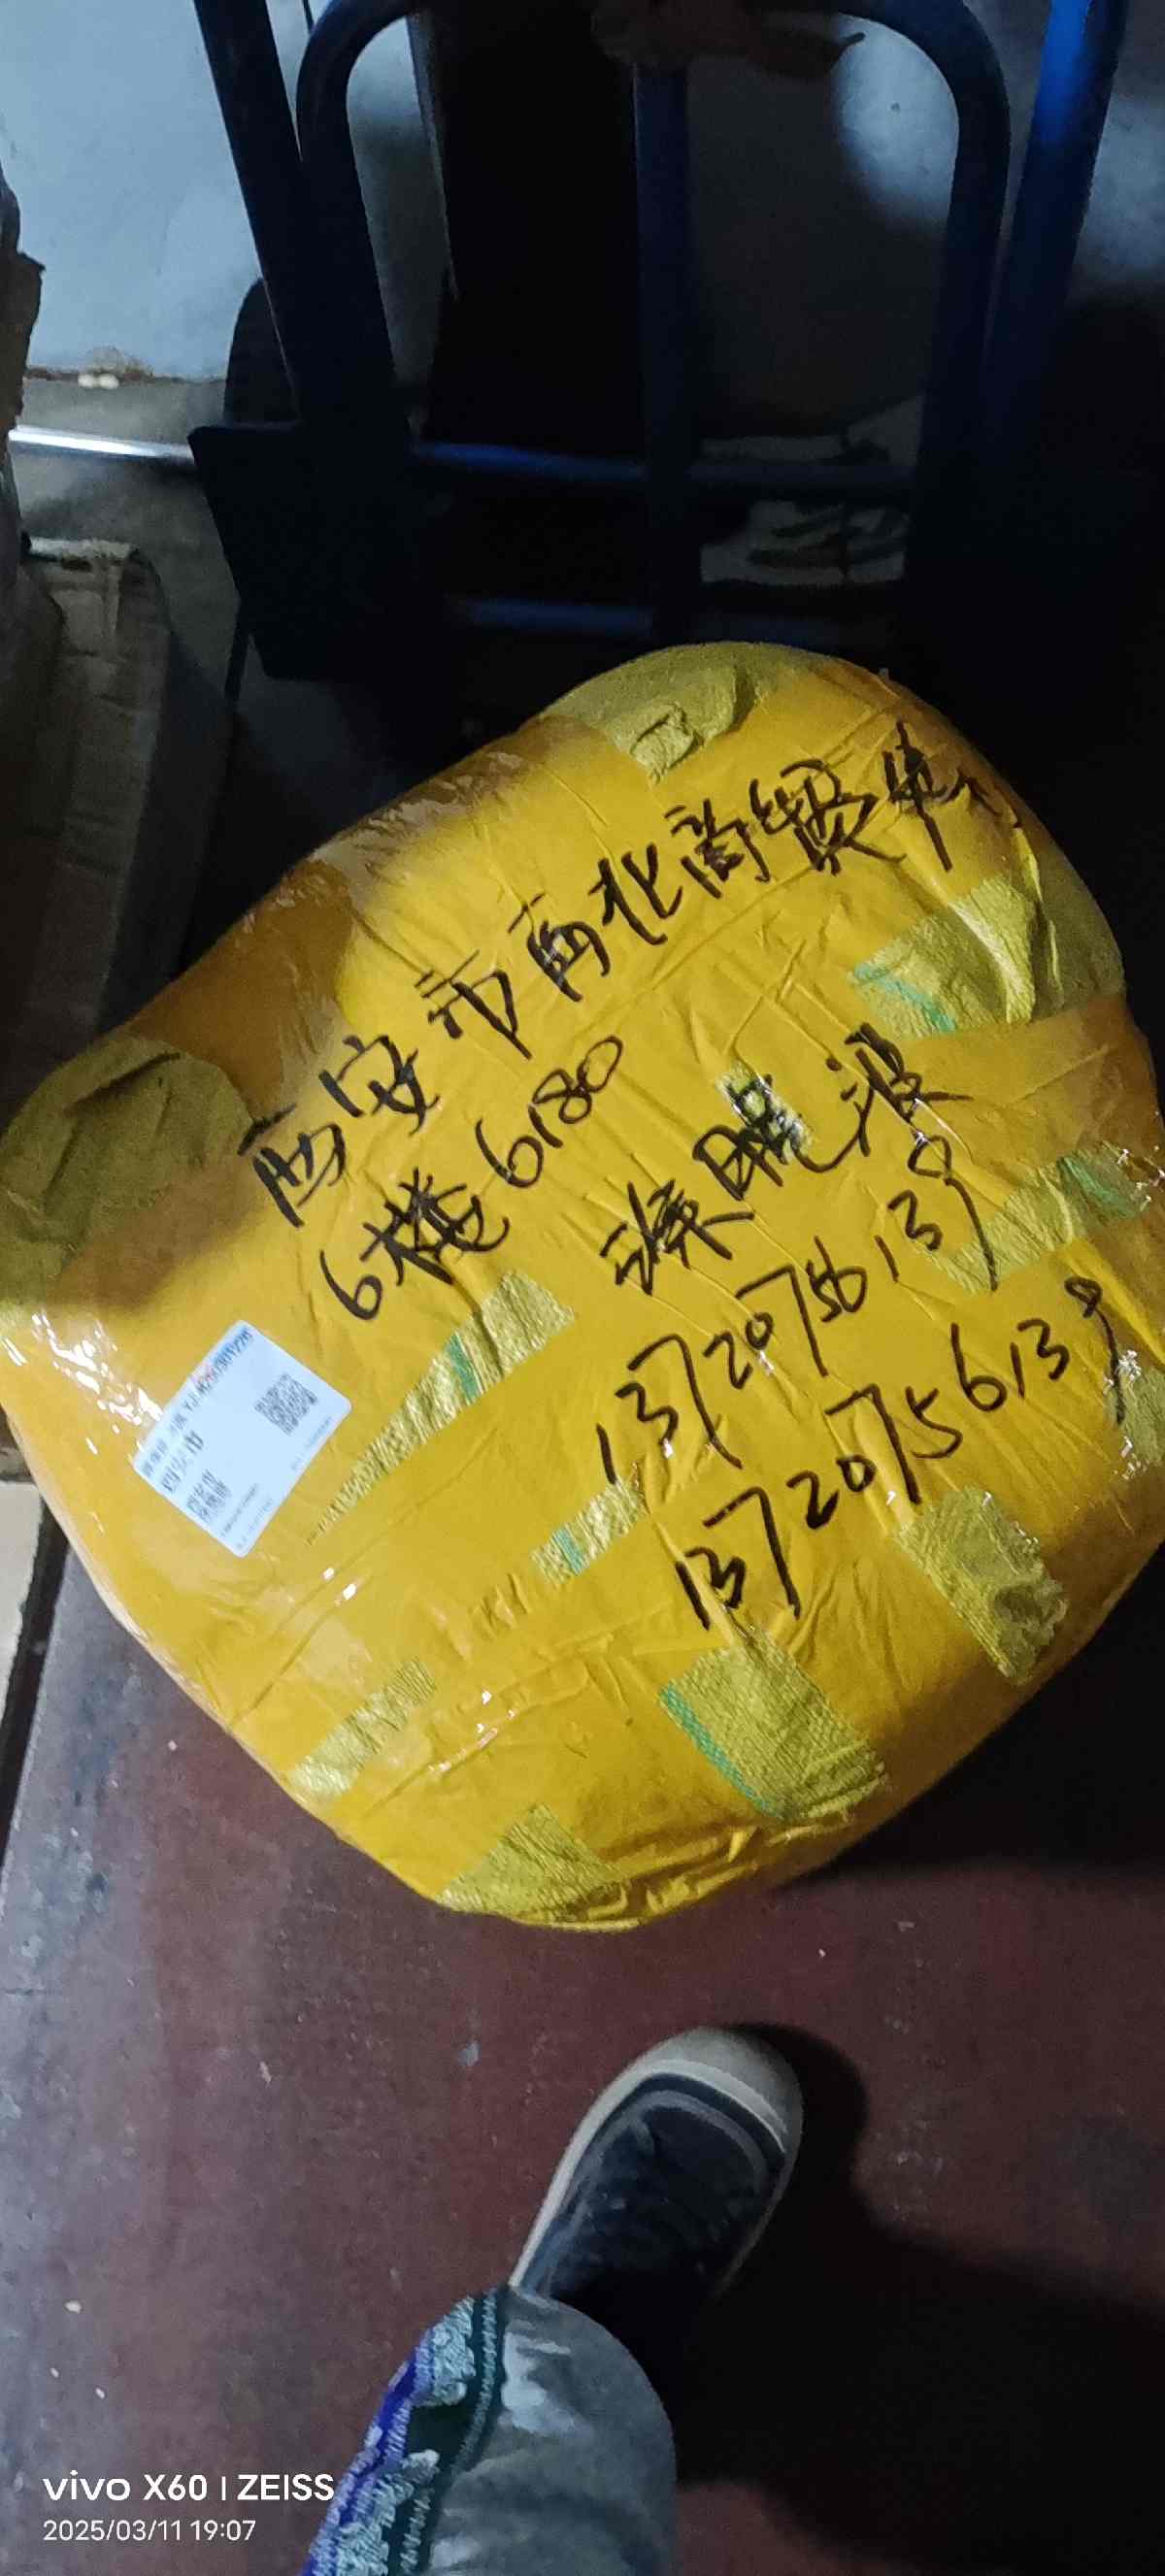 西安市西北商贸中心
6楼6180
晓波
13720756139
13720756139
vivo X60 | ZEISS
2025/03/11 19:07